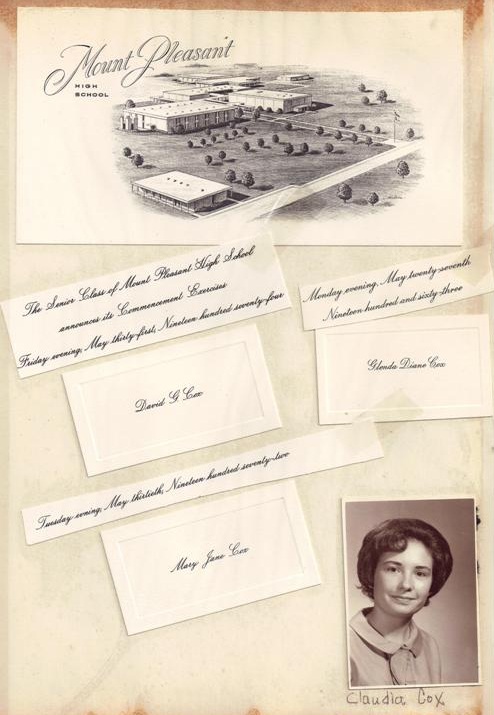 Mount Pleasant
HIGH
SCHOOL
The Senior Class of Mount Pleasant High School
announces its Commencement Exercises
Friday evening, May thirty-first, Nineteen hundred seventy-four
Monday evening, May twenty-seventh
Nineteen hundred and sixty-three
David G Cox
Glenda Diane Cox
Tuesday evning, May thirtieth, Nineteen hundred seventy-two
Mary Jane Cox
Claudia Cox